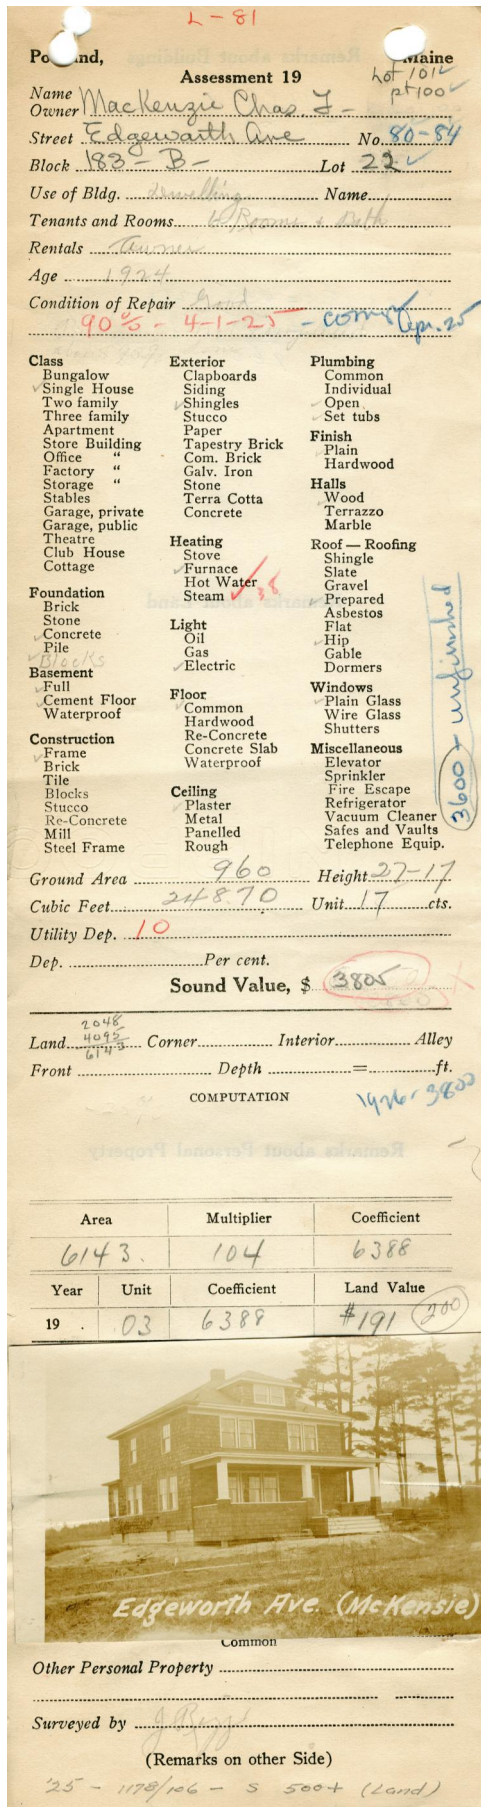 L-81
Portland, Maine
Assessment 19
Lot 101
pt 100
Name
Owner MacKenzie Chas. F-
Street Edgewarth Ave No. 80-84
Block 183-B- Lot 22
Use of Bldg. dwelling Name
Tenants and Rooms 6 Rooms & Bath
Rentals Owner
Age 1924
Condition of Repair Good
90% - 4-1-25 - Apr. 25
Class
Bungalow
Single House
Two family
Three family
Apartment
Store Building
Office "
Factory "
Storage "
Stables
Garage, private
Garage, public
Theatre
Club House
Cottage
Foundation
Brick
Stone
Concrete
Pile
Blocks
Basement
Full
Cement Floor
Waterproof
Construction
Frame
Brick
Tile
Blocks
Stucco
Re-Concrete
Mill
Steel Frame
Exterior
Clapboards
Siding
Shingles
Stucco
Paper
Tapestry Brick
Com. Brick
Galv. Iron
Stone
Terra Cotta
Concrete
Heating
Stove
Furnace
Hot Water
Steam 38
Light
Oil
Gas
Electric
Floor
Common
Hardwood
Re-Concrete
Concrete Slab
Waterproof
Ceiling
Plaster
Metal
Panelled
Rough
Plumbing
Common
Individual
Open
Set tubs
Finish
Plain
Hardwood
Halls
Wood
Terrazzo
Marble
Roof — Roofing
Shingle
Slate
Gravel
Prepared
Asbestos
Flat
Hip
Gable
Dormers
Windows
Plain Glass
Wire Glass
Shutters
Miscellaneous
Elevator
Sprinkler
Fire Escape
Refrigerator
Vacuum Cleaner
Safes and Vaults
Telephone Equip.
3600 + unfinished
Ground Area 960 Height 27-17
Cubic Feet 24870 Unit 17 cts.
Utility Dep. 10
Dep. Per cent.
Sound Value, $ 3805
2048
4095
6143
Land Corner Interior Alley
Front Depth = ft.
COMPUTATION
1926-3800
Area Multiplier Coefficient
6143. 104 6388
Year Unit Coefficient Land Value
19 . 03 6388 $191 200
Edgeworth Ave. (McKensie)
Common
Other Personal Property
Surveyed by
(Remarks on other Side)
'25 - 1178/106 - S 500+ (Land)